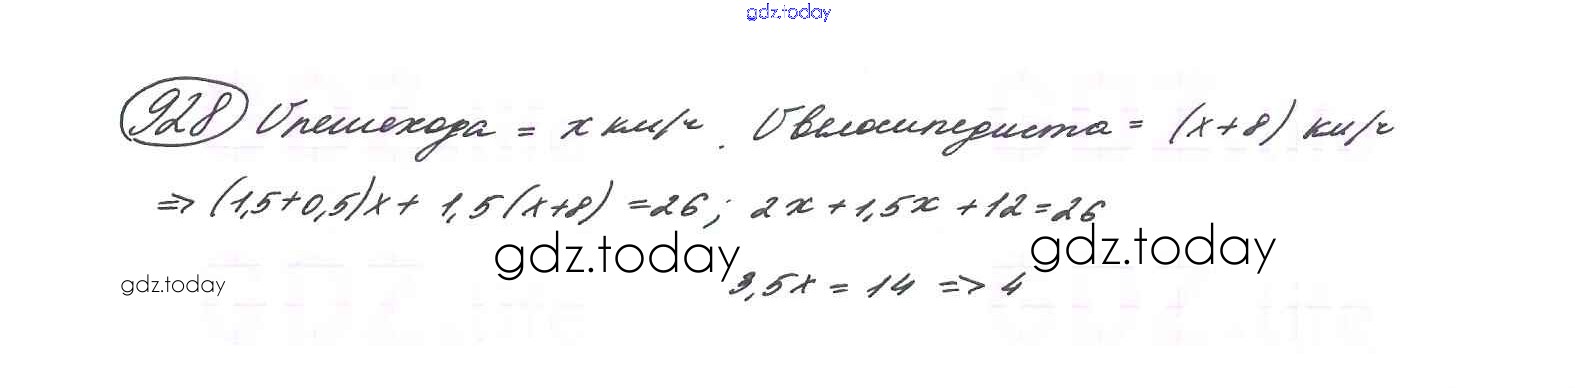 gdz.today
928 Vпешехода = x км/ч. Vвелосипедиста = (x+8) км/ч
=> (1,5+0,5)x + 1,5(x+8) = 26; 2x + 1,5x + 12 = 26
gdz.today gdz.today
gdz.today 3,5x = 14 => 4